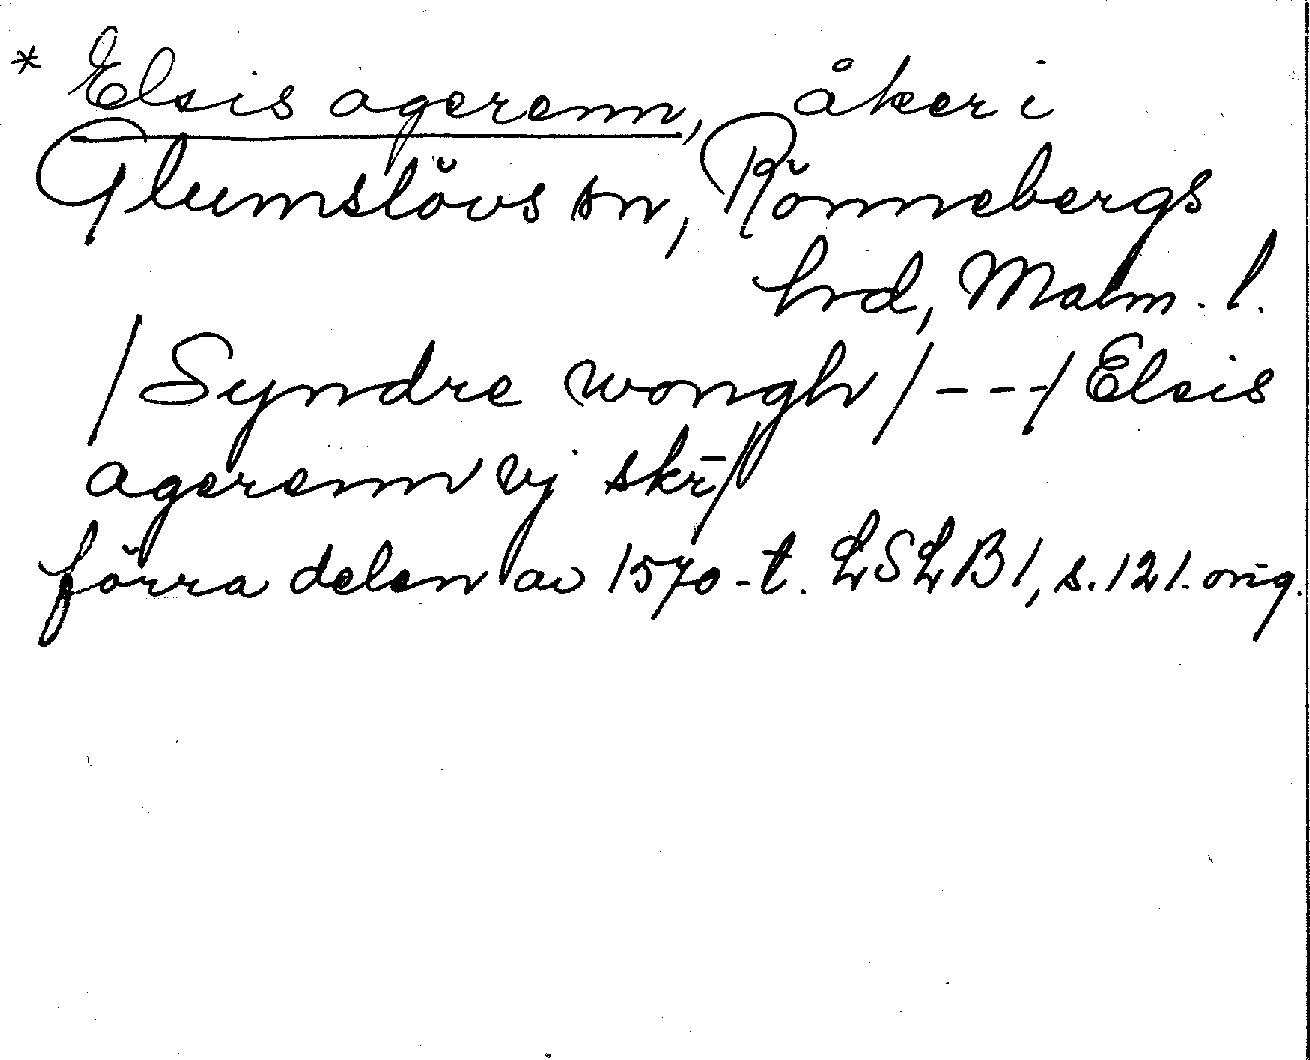 * Elsis agerenn, åker i
Glumslövs sn, Rönnebergs
hrd, Malm. l.
/Syndre wongh/---/Elsis
agerenn vj skr̄/
förra delen av 1570-t. LSLB1, s. 121. orig.